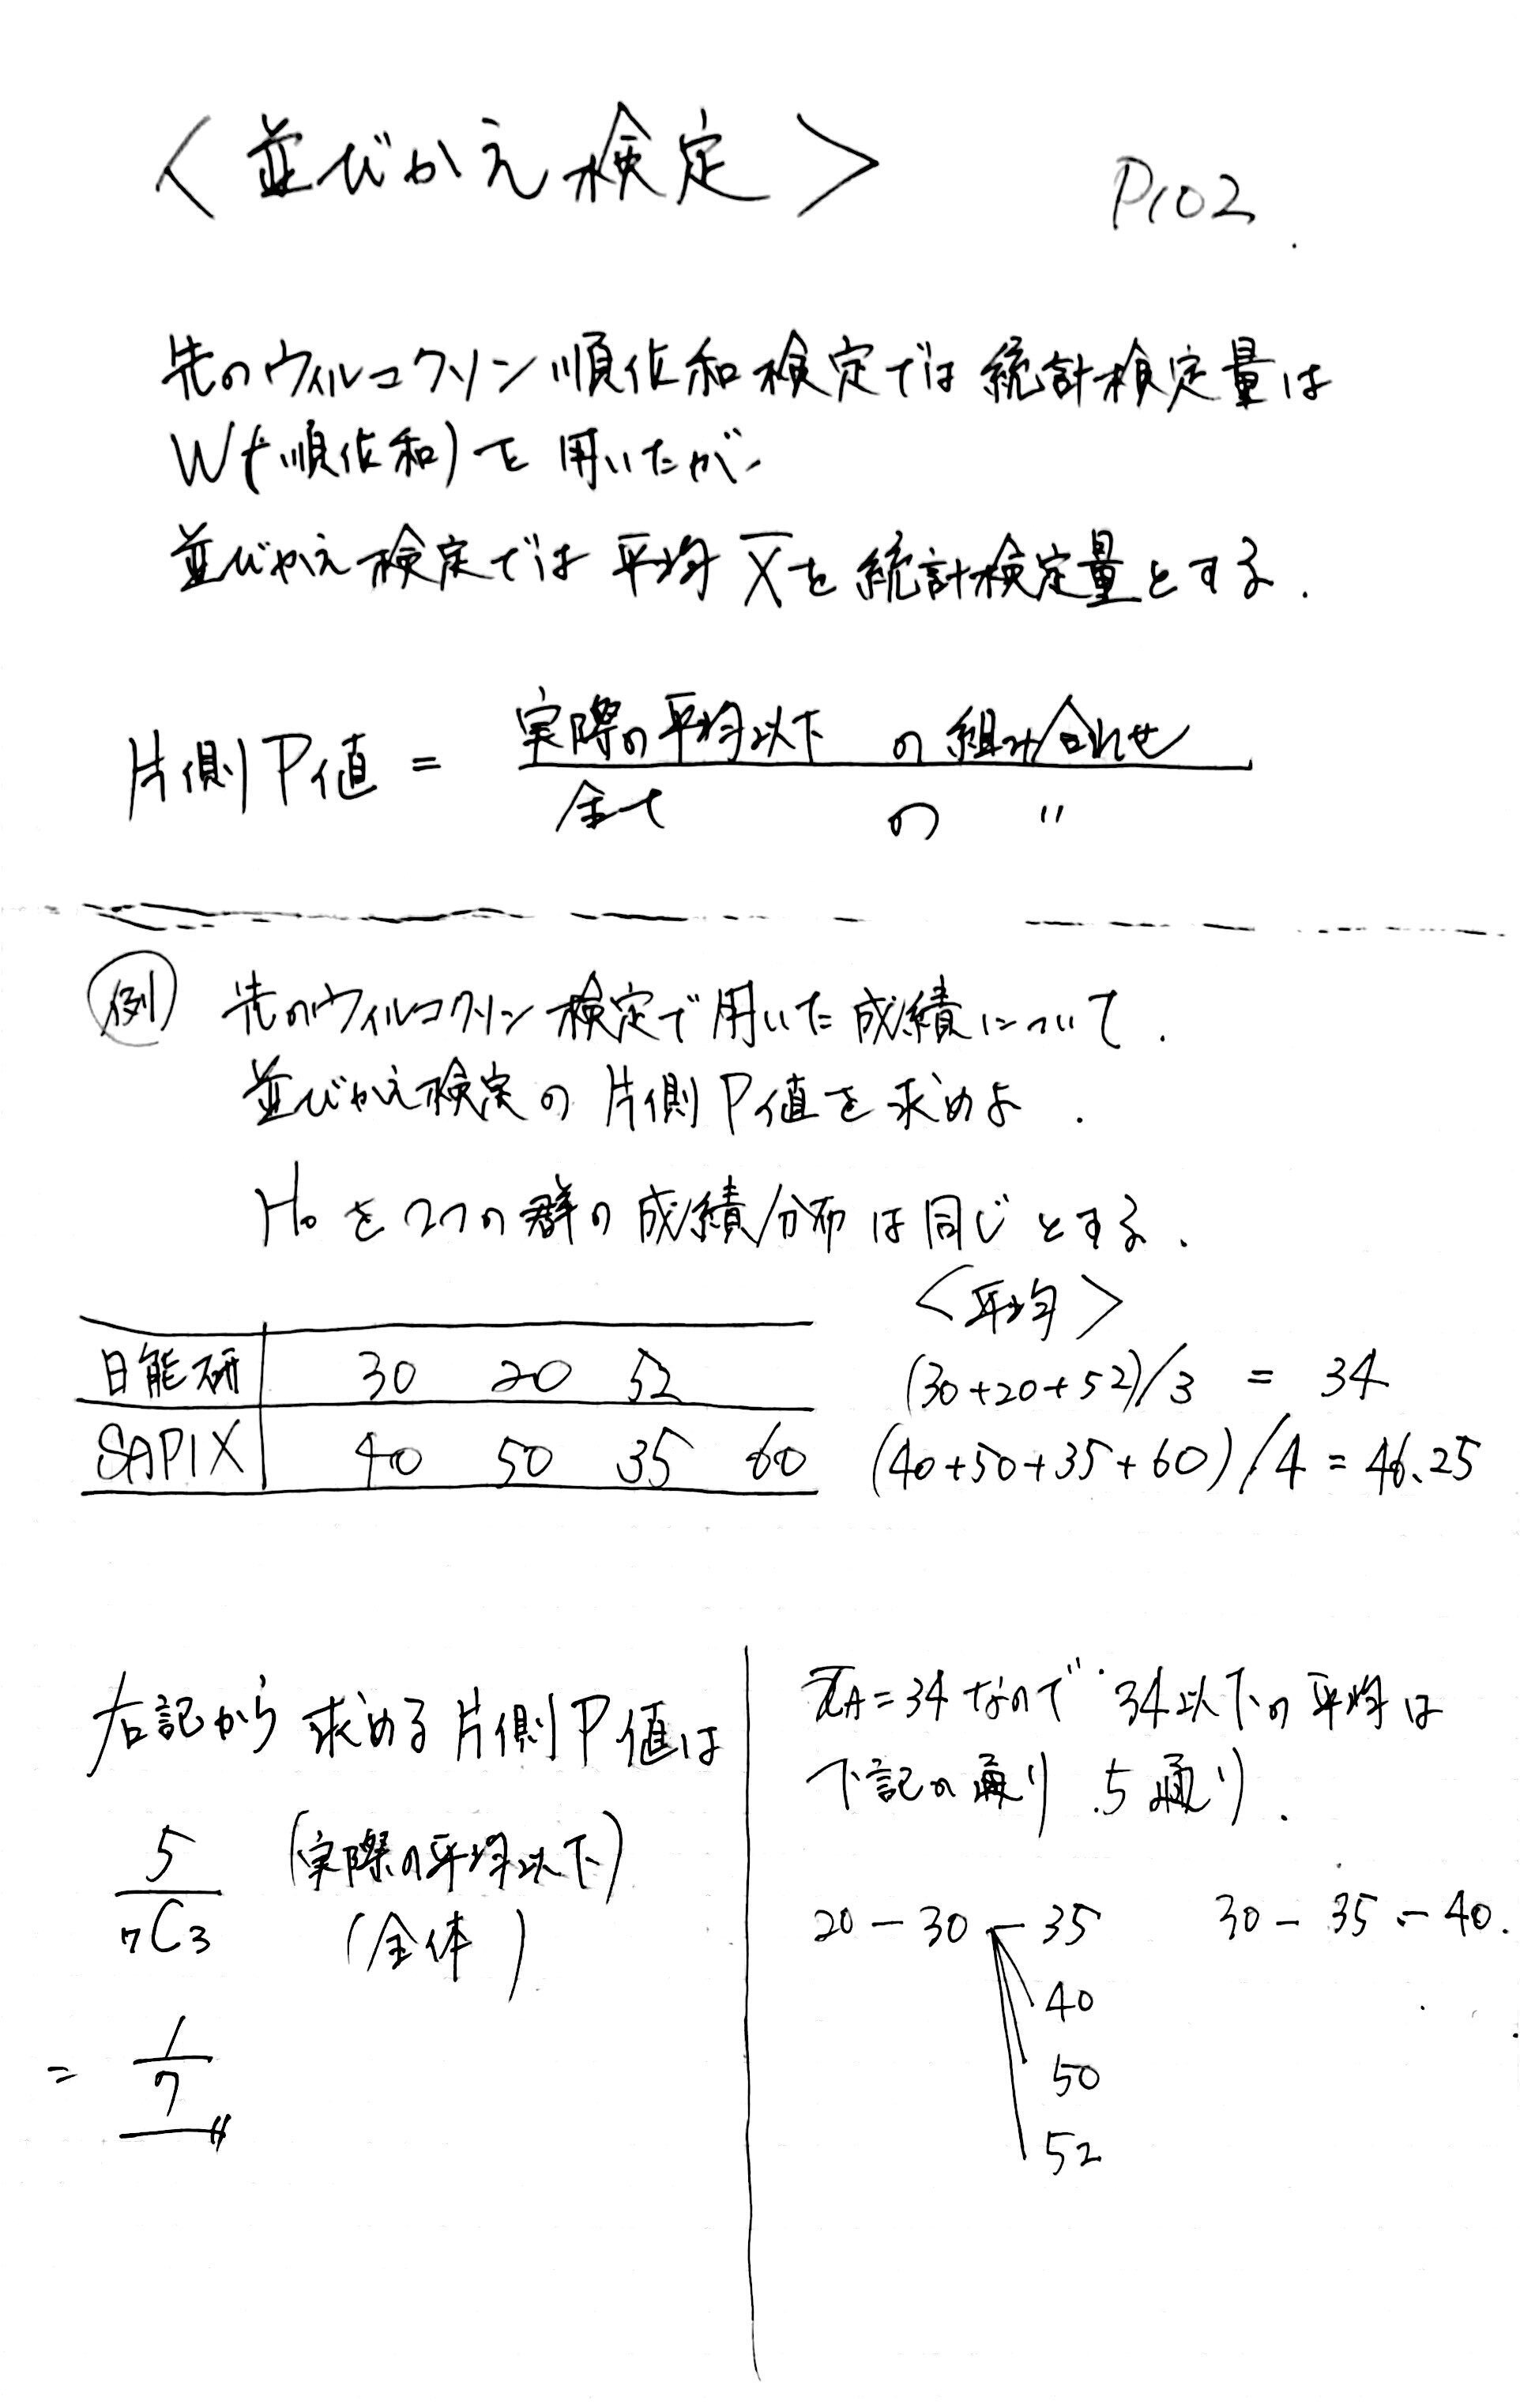 ＜並びかえ検定＞ P102
先のウィルコクソン順位和検定では統計検定量は
W(順位和)を用いたが、
並びかえ検定では平均 X̄を統計検定量とする.
片側P値 = 実際の平均以下 の組み合わせ
全て の 〃
例 先のウィルコクソン検定で用いた成績について.
並びかえ検定の片側P値を求めよ.
H₀を2つの群の成績分布は同じとする.
＜平均＞
日能研 30 20 52 (30+20+52)/3 = 34
SAPIX 40 50 35 60 (40+50+35+60)/4 = 46.25
右記から求める片側P値は
5 (実際の平均以下)
₇C₃ (全体)
= 1
7
x̄A=34なので 34以下の平均は
下記の通り.5通り.
20 - 30 - 35 30 - 35 - 40.
40
50
52